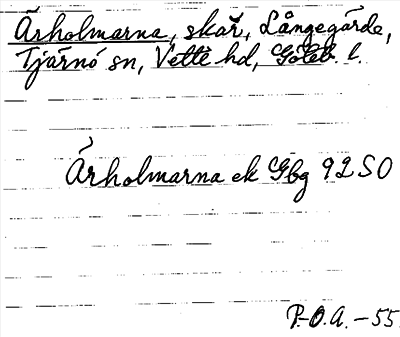 Ärholmarna, skär, Långegärde,
Tjärnö sn, Vette hd, Göteb. l.
Ärholmarna ek Gbg 92 SO
P.-O.A. -55.